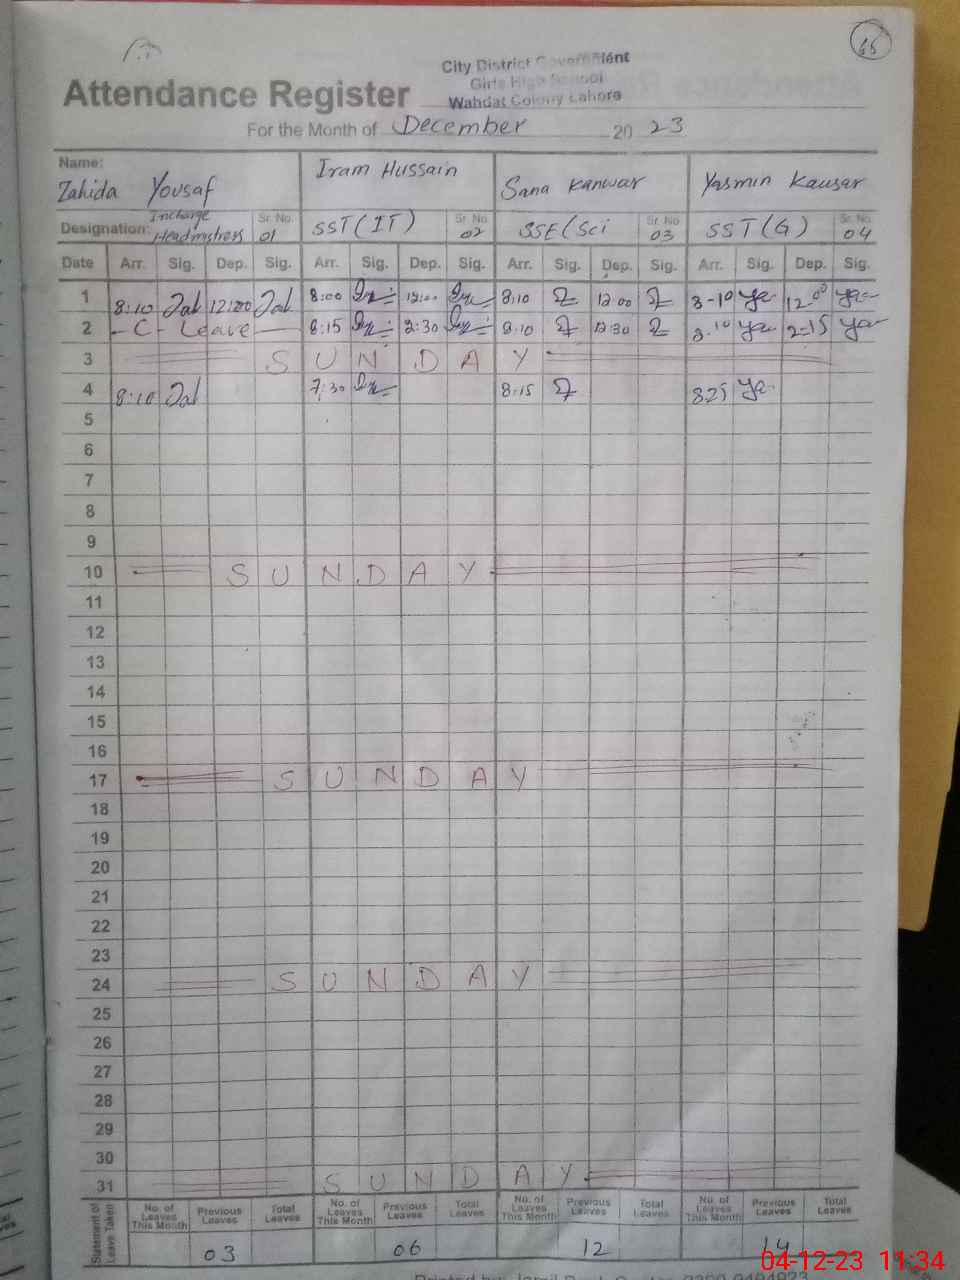 65
City District Government
Girls High School
Wahdat Colony Lahore
Attendance Register
For the Month of December 20 23
Name: Zahida Yousaf Iram Hussain Sana Kanwar Yasmin Kausar
Designation: Incharge Headmistress Sr. No. 01 SST (IT) Sr. No 02 SSE (Sci Sr. No 03 SST (G) Sr. No. 04
Date Arr. Sig. Dep. Sig. Arr. Sig. Dep. Sig. Arr. Sig. Dep. Sig. Arr. Sig. Dep. Sig.
1 8:10 12:00 8:00 12:00 8:10 12 00 8-10 Ya 12 00 Ya
2 - C - Leave - 8:15 2:30 8:10 Ya 2-15 Ya
3 S U N D A Y
4 8:10 7:30 8:15 825 Ya
5
6
7
8
9
10 S U N D A Y
11
12
13
14
15
16
17 S U N D A Y
18
19
20
21
22
23
24 S U N D A Y
25
26
27
28
29
30
31 S U N D A Y
Statement of Leave Taken No. of Leaves This Month Previous Leaves Total Leaves No. of Leaves This Month Previous Leaves Total Leaves No. of Leaves This Month Previous Leaves Total Leaves No. of Leaves This Month Previous Leaves Total Leaves
03 06 12 14
04-12-23 11:34